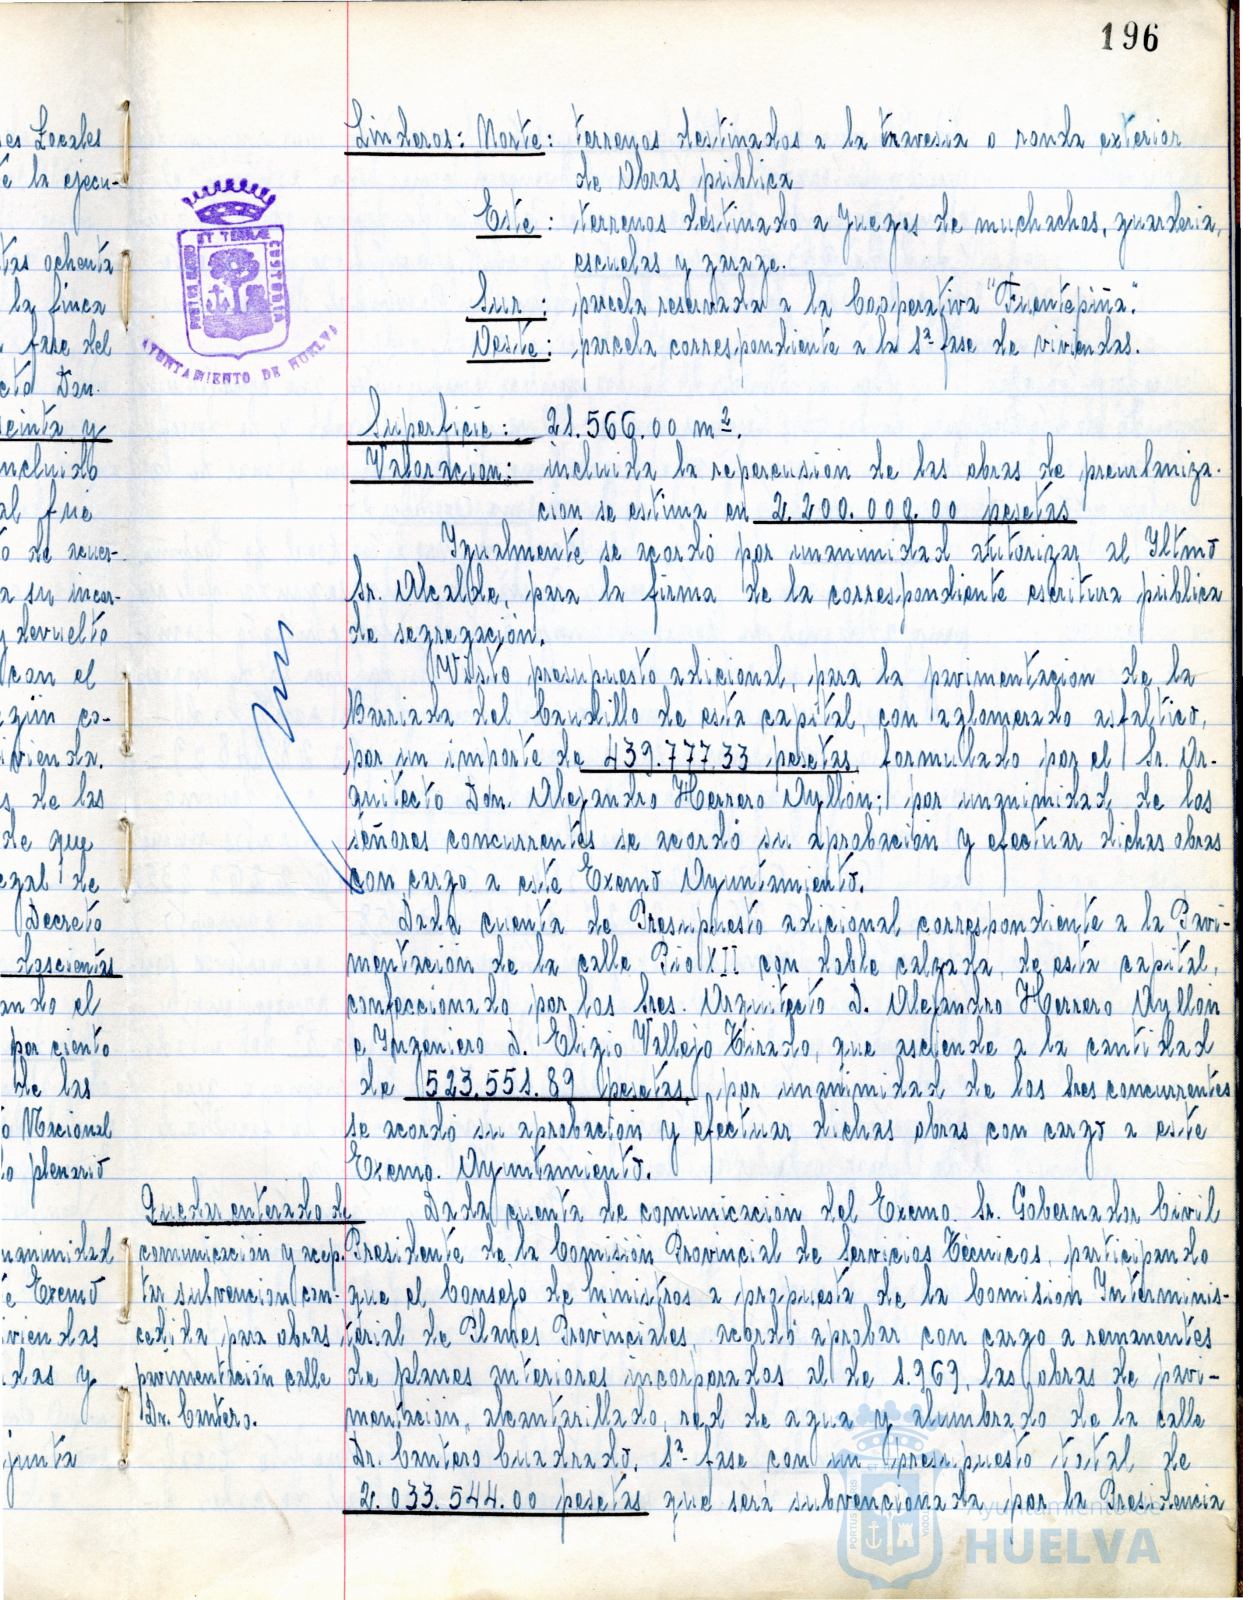 196
Linderos: Norte: terrenos destinados a la travesia o ronda exterior
de Obras pública
Este: terrenos destinado a Juegos de muchachos, guarderia,
escuelas y garage.
Sur: parcela reservada a la Cooperativa "Fuentepiña".
Oeste: parcela correspondiente a la 1ª fase de viviendas.
Superficie: 21.566.00 m².
Valoración: incluida la repercusión de las obras de preurbaniza-
cion se estima en 2.200.000.00 pesetas
Igualmente se acordó por unanimidad autorizar al Iltmo
Sr. Alcalde, para la firma de la correspondiente escritura pública
de segregación.
Visto presupuesto adicional, para la pavimentación de la
Barriada del Caudillo de esta capital, con aglomerado asfaltico,
por un importe de 439.777,33 pesetas, formulado por el Sr. Ar-
quitecto Don. Alejandro Herrero Ayllón; por unanimidad de los
señores concurrentes se acordó su aprobación y efectuar dichas obras
con cargo a este Excmo Ayuntamiento.
Dada cuenta de Presupuesto adicional correspondiente a la Pavi-
mentación de la calle Pio XII con doble calzada, de esta capital,
confeccionado por los Sres. Arquitecto D. Alejandro Herrero Ayllón
e Ingeniero D. Eligio Vallejo Tirado, que asciende a la cantidad
de 523.551.89 pesetas, por unanimidad de los Sres concurrentes
se acordó su aprobación y efectuar dichas obras con cargo a este
Excmo. Ayuntamiento.
Quedar enterado de
comunicación y acep-
tar subvencion con-
cedida para obras
pavimentación calle
Dr. Cantero.
Dada cuenta de comunicación del Excmo. Sr. Gobernador Civil
Presidente de la Comisión Provincial de Servicios Técnicos, participando
que el Consejo de Ministros a propuesta de la Comisión Interminis-
terial de Planes Provinciales, acordó aprobar con cargo a remanentes
de planes anteriores incorporados al de 1.969, las obras de pavi-
mentación, alcantarillado, red de agua y alumbrado de la calle
Dr. Cantero Cuadrado, 1ª fase con un presupuesto total de
2.033.544.00 pesetas que será subvencionada por la Presidencia
es Locales
e la ejecu-
tas ochenta
la finca
fase del
cto Don.
einta y
ncluido
al fué
o de acuer-
a su incor-
y devuelto
can el
egún co-
vivienda.
s de las
de que
egal de
Decreto
doscientas
ando el
por ciento
de las
o Nacional
o plenario
nanimidad
e Excmo
viendas
das y
junta
PORTUS MARIS ET TERRAE CUSTODIA
AYUNTAMIENTO DE HUELVA
Ayuntamiento de
HUELVA